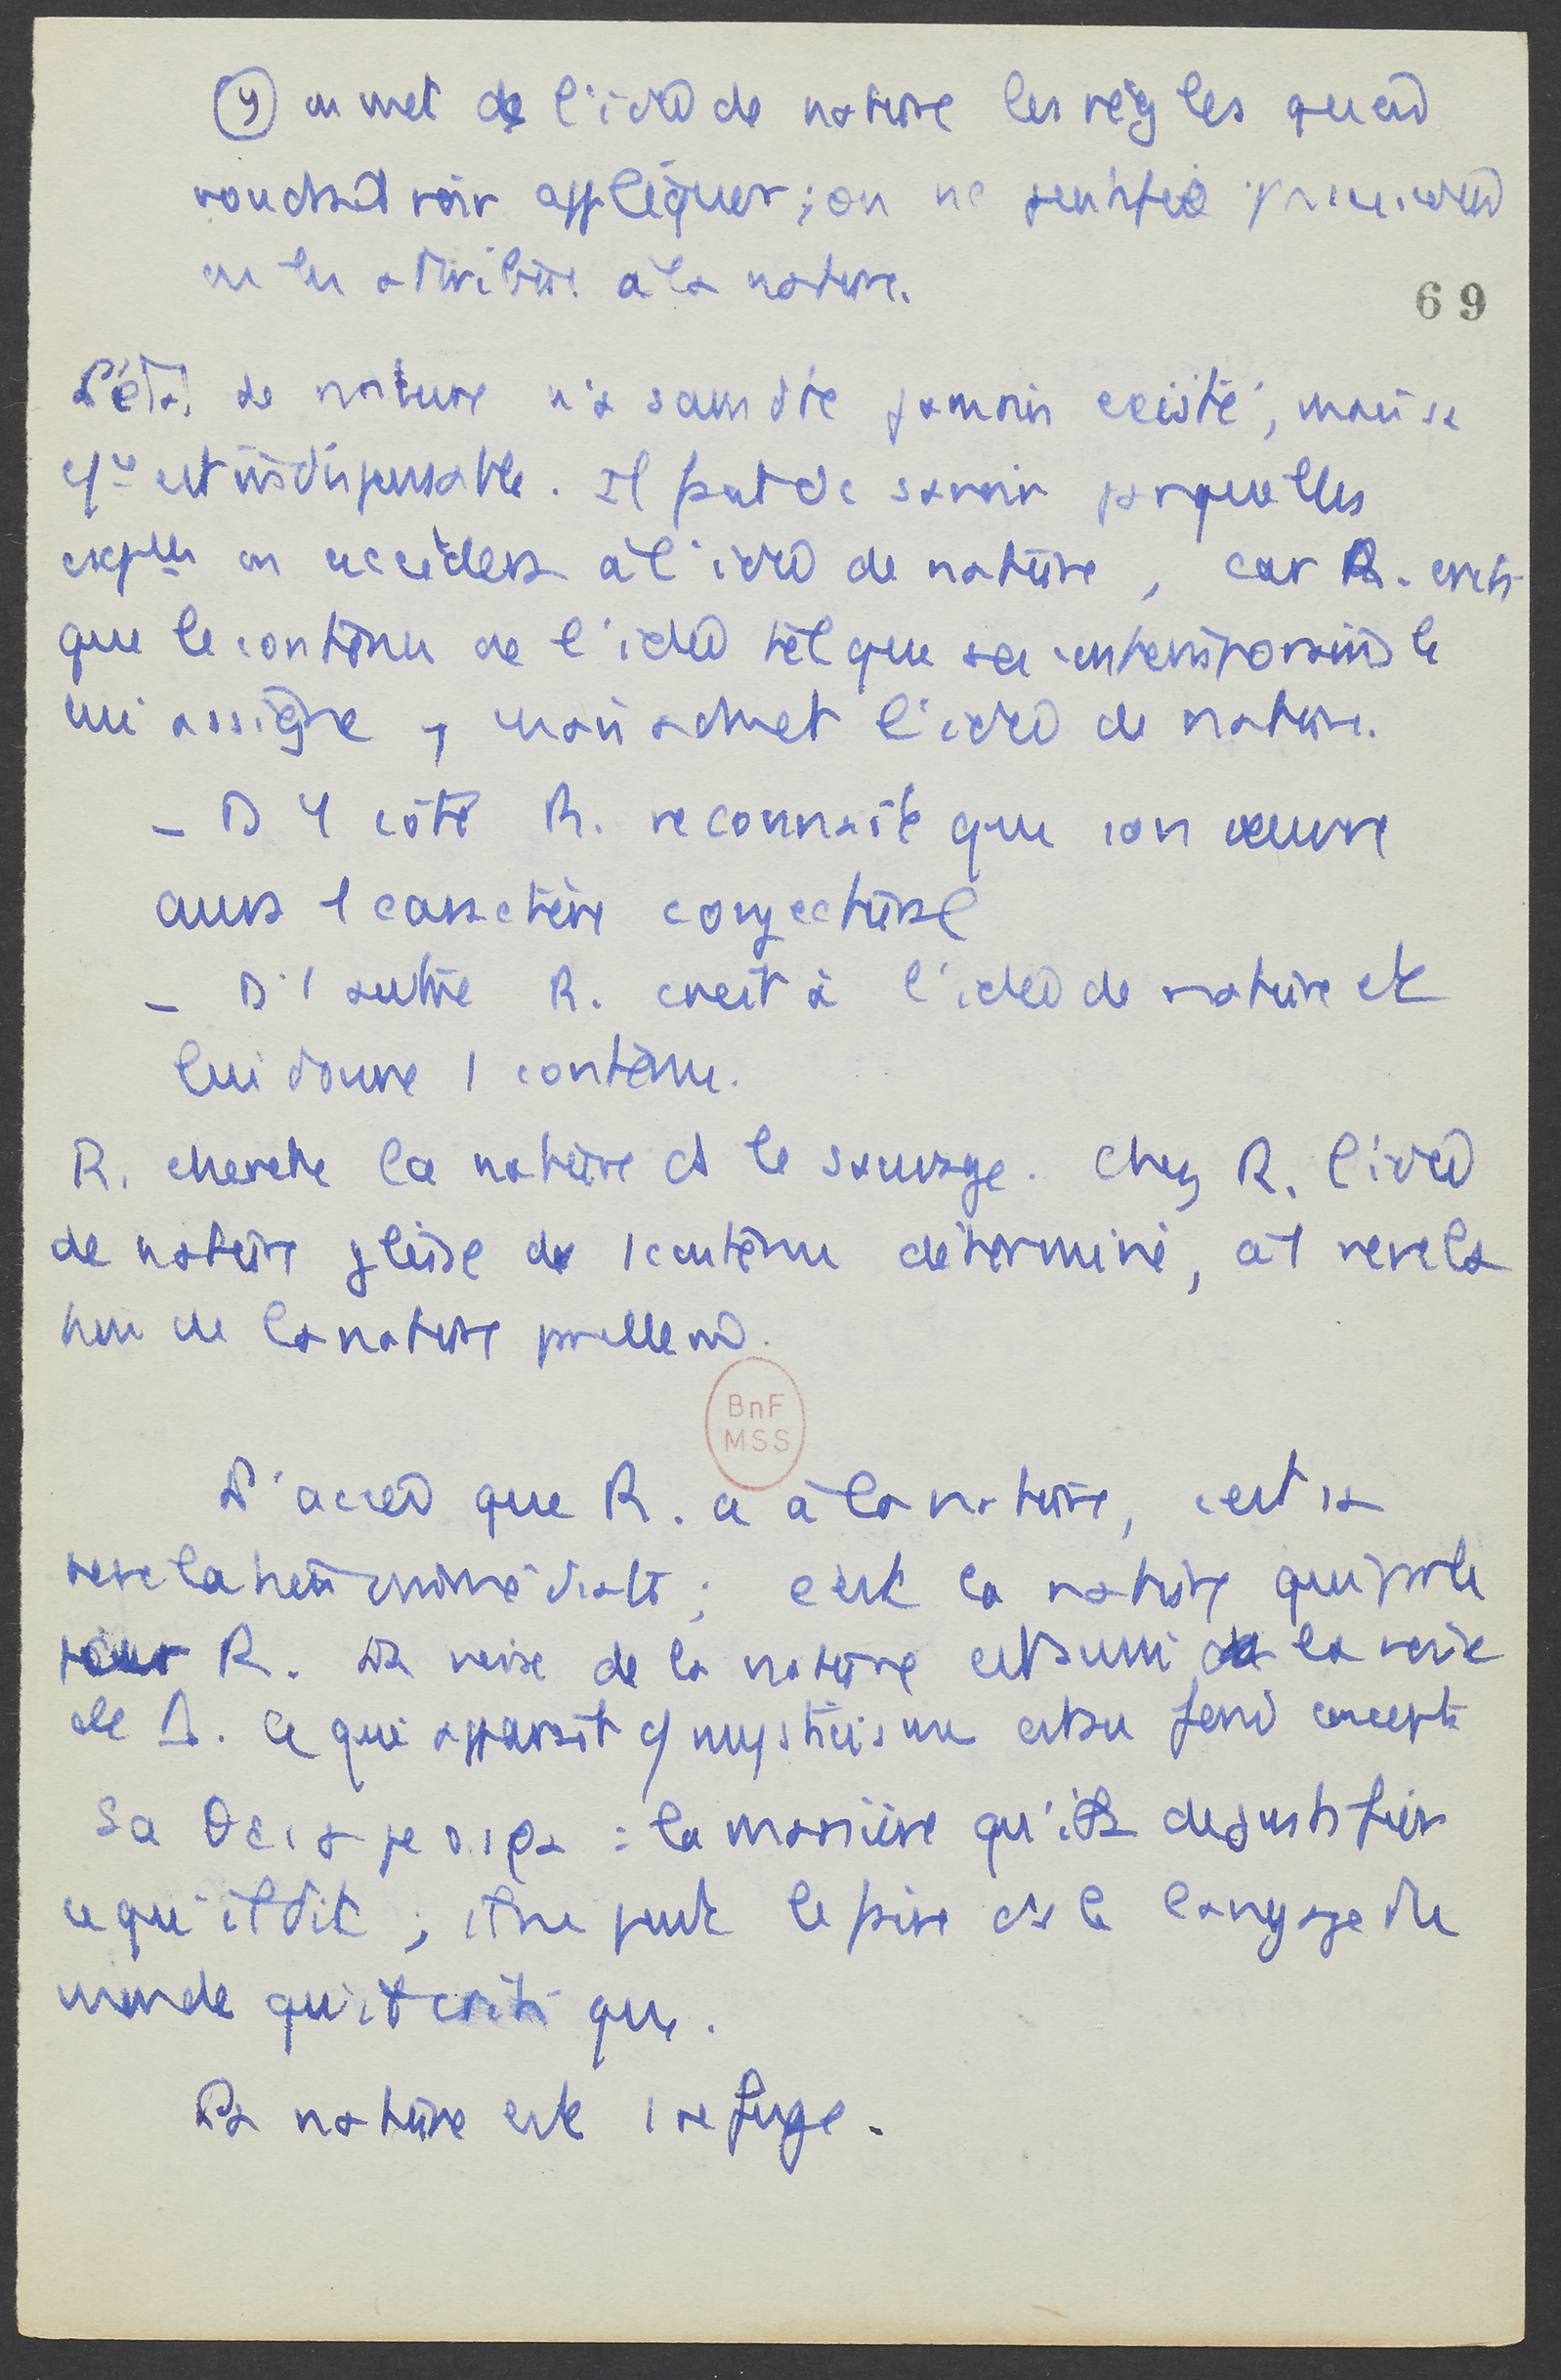 γ on met ds l'idée de nature les règles qu'on
voudrait voir appliquer ; on ne
en les attribue à la nature.
69
L'état de nature n'a sans dte jamais existé, mais sa
est indispensable. Il faut dc savoir par quelles
on accèdera à l'idée de nature, car R. critique
que le contenu de l'idée tel que ses contemporains le
lui assigne, mais admet l'idée de nature.
– D' 1 côté R. reconnaît que son œuvre
aura 1 caractère conjectural
– D' 1 autre R. croit à l'idée de nature et
lui donne 1 contenu.
R. cherche la nature ds le sauvage. Chez R. l'idée
de nature glisse de 1 contenu déterminé, à 1 révéla
tion de la nature
L'accès que R. a à la nature, c'est sa
révélation immédiate ; c'est la nature qui parle
pour R. La voix de la nature est aussi la voix
de D. Ce qui apparaît cō mysticisme est au fond
Sa : la manière qu'il a de justifier
ce qu'il dit ; il ne peut le faire ds le langage du
monde qu'il critique.
La nature est 1 refuge.
BnF
MSS